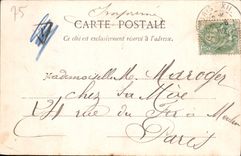 75
Imprimé
CARTE POSTALE
Ce côté est exclusivement réservé à l'adresse.
Mademoiselle M. Maroger
chez Sa Mère
21 rue du Fer à Moulin
Paris